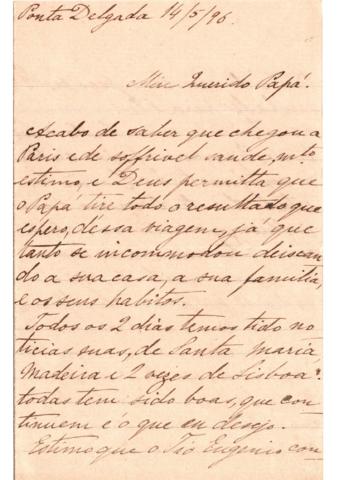 Ponta Delgada 14/5/96.
Meu Querido Papá.
Acabo de saber que chegou a
Paris e de soffrivel saude, m.to
estimo, e Deus permitta que
o Papá tire todo o resultado que
espero, déssa viagem, já que
tanto se incommodou deixan
do a sua casa, a sua familia,
e os seus habitos.
Todos os 2 dias temos tido no
ticias suas, de Santa Maria
Madeira e 2 vezes de Lisboa
todas tem sido boas, que con
tinuem é o que eu desejo.
Estimo que o Tio Eugenio con